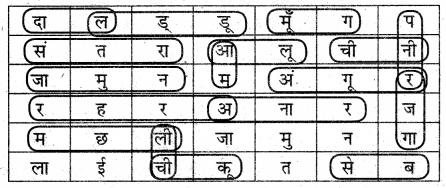 दा ल ड् डू मूँ ग प
सं त रा आ लू ची नी
जा मु न म अं गू र
र ह र अ ना र ज
म छ ली जा मु न गा
ला ई ची कू त से ब